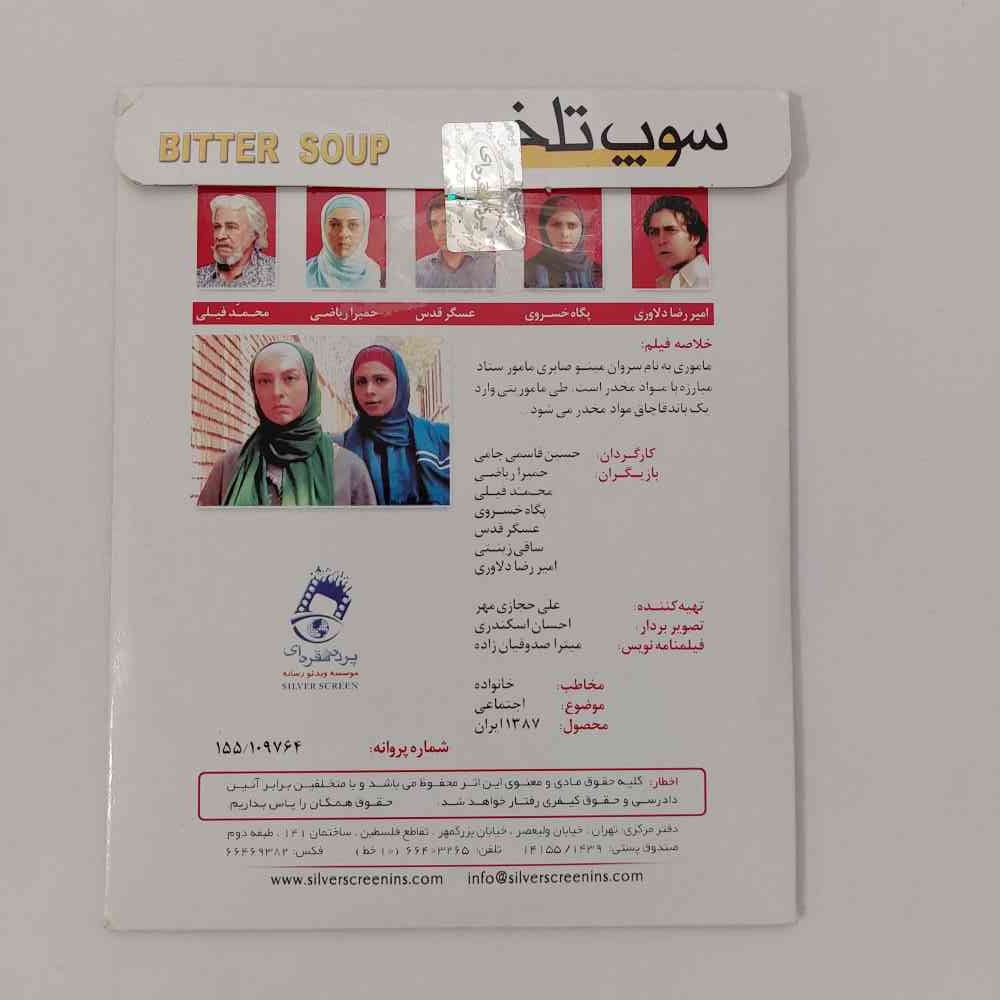 سوپ تلخ
BITTER SOUP
امیر رضا دلاوری پگاه خسروی عسگر قدس حمیرا ریاضی محمد فیلی
خلاصه فیلم:
ماموری به نام سروان مینو صابری مامور ستاد
مبارزه با مواد مخدر است. طی ماموریتی وارد
یک باند قاچاق مواد مخدر می شود ...
کارگردان: حسین قاسمی جامی
بازیگران: حمیرا ریاضی
محمد فیلی
پگاه خسروی
عسگر قدس
ساقی زینتی
امیر رضا دلاوری
تهیه کننده: علی حجازی مهر
تصویر بردار: احسان اسکندری
فیلمنامه نویس: میترا صدوقیان زاده
مخاطب: خانواده
موضوع: اجتماعی
محصول: ۱۳۸۷ ایران
پرده نقره‌ای
موسسه ویدئو رسانه
SILVER SCREEN
شماره پروانه: ۱۵۵/۱۰۹۷۶۴
اخطار: کلیه حقوق مادی و معنوی این اثر محفوظ می باشد و با متخلفین برابر آئین
دادرسی و حقوق کیفری رفتار خواهد شد. حقوق همکان را پاس بداریم.
دفتر مرکزی: تهران ، خیابان ولیعصر ، خیابان بزرگمهر ، تقاطع فلسطین ، ساختمان ۱۴۱ ، طبقه دوم
صندوق پستی: ۱۴۳۹ / ۱۴۱۵۵ تلفن: ۶۶۴۰۳۲۶۵ (۱۰ خط) فکس: ۶۶۴۶۹۳۸۲
www.silverscreenins.com info@silverscreenins.com